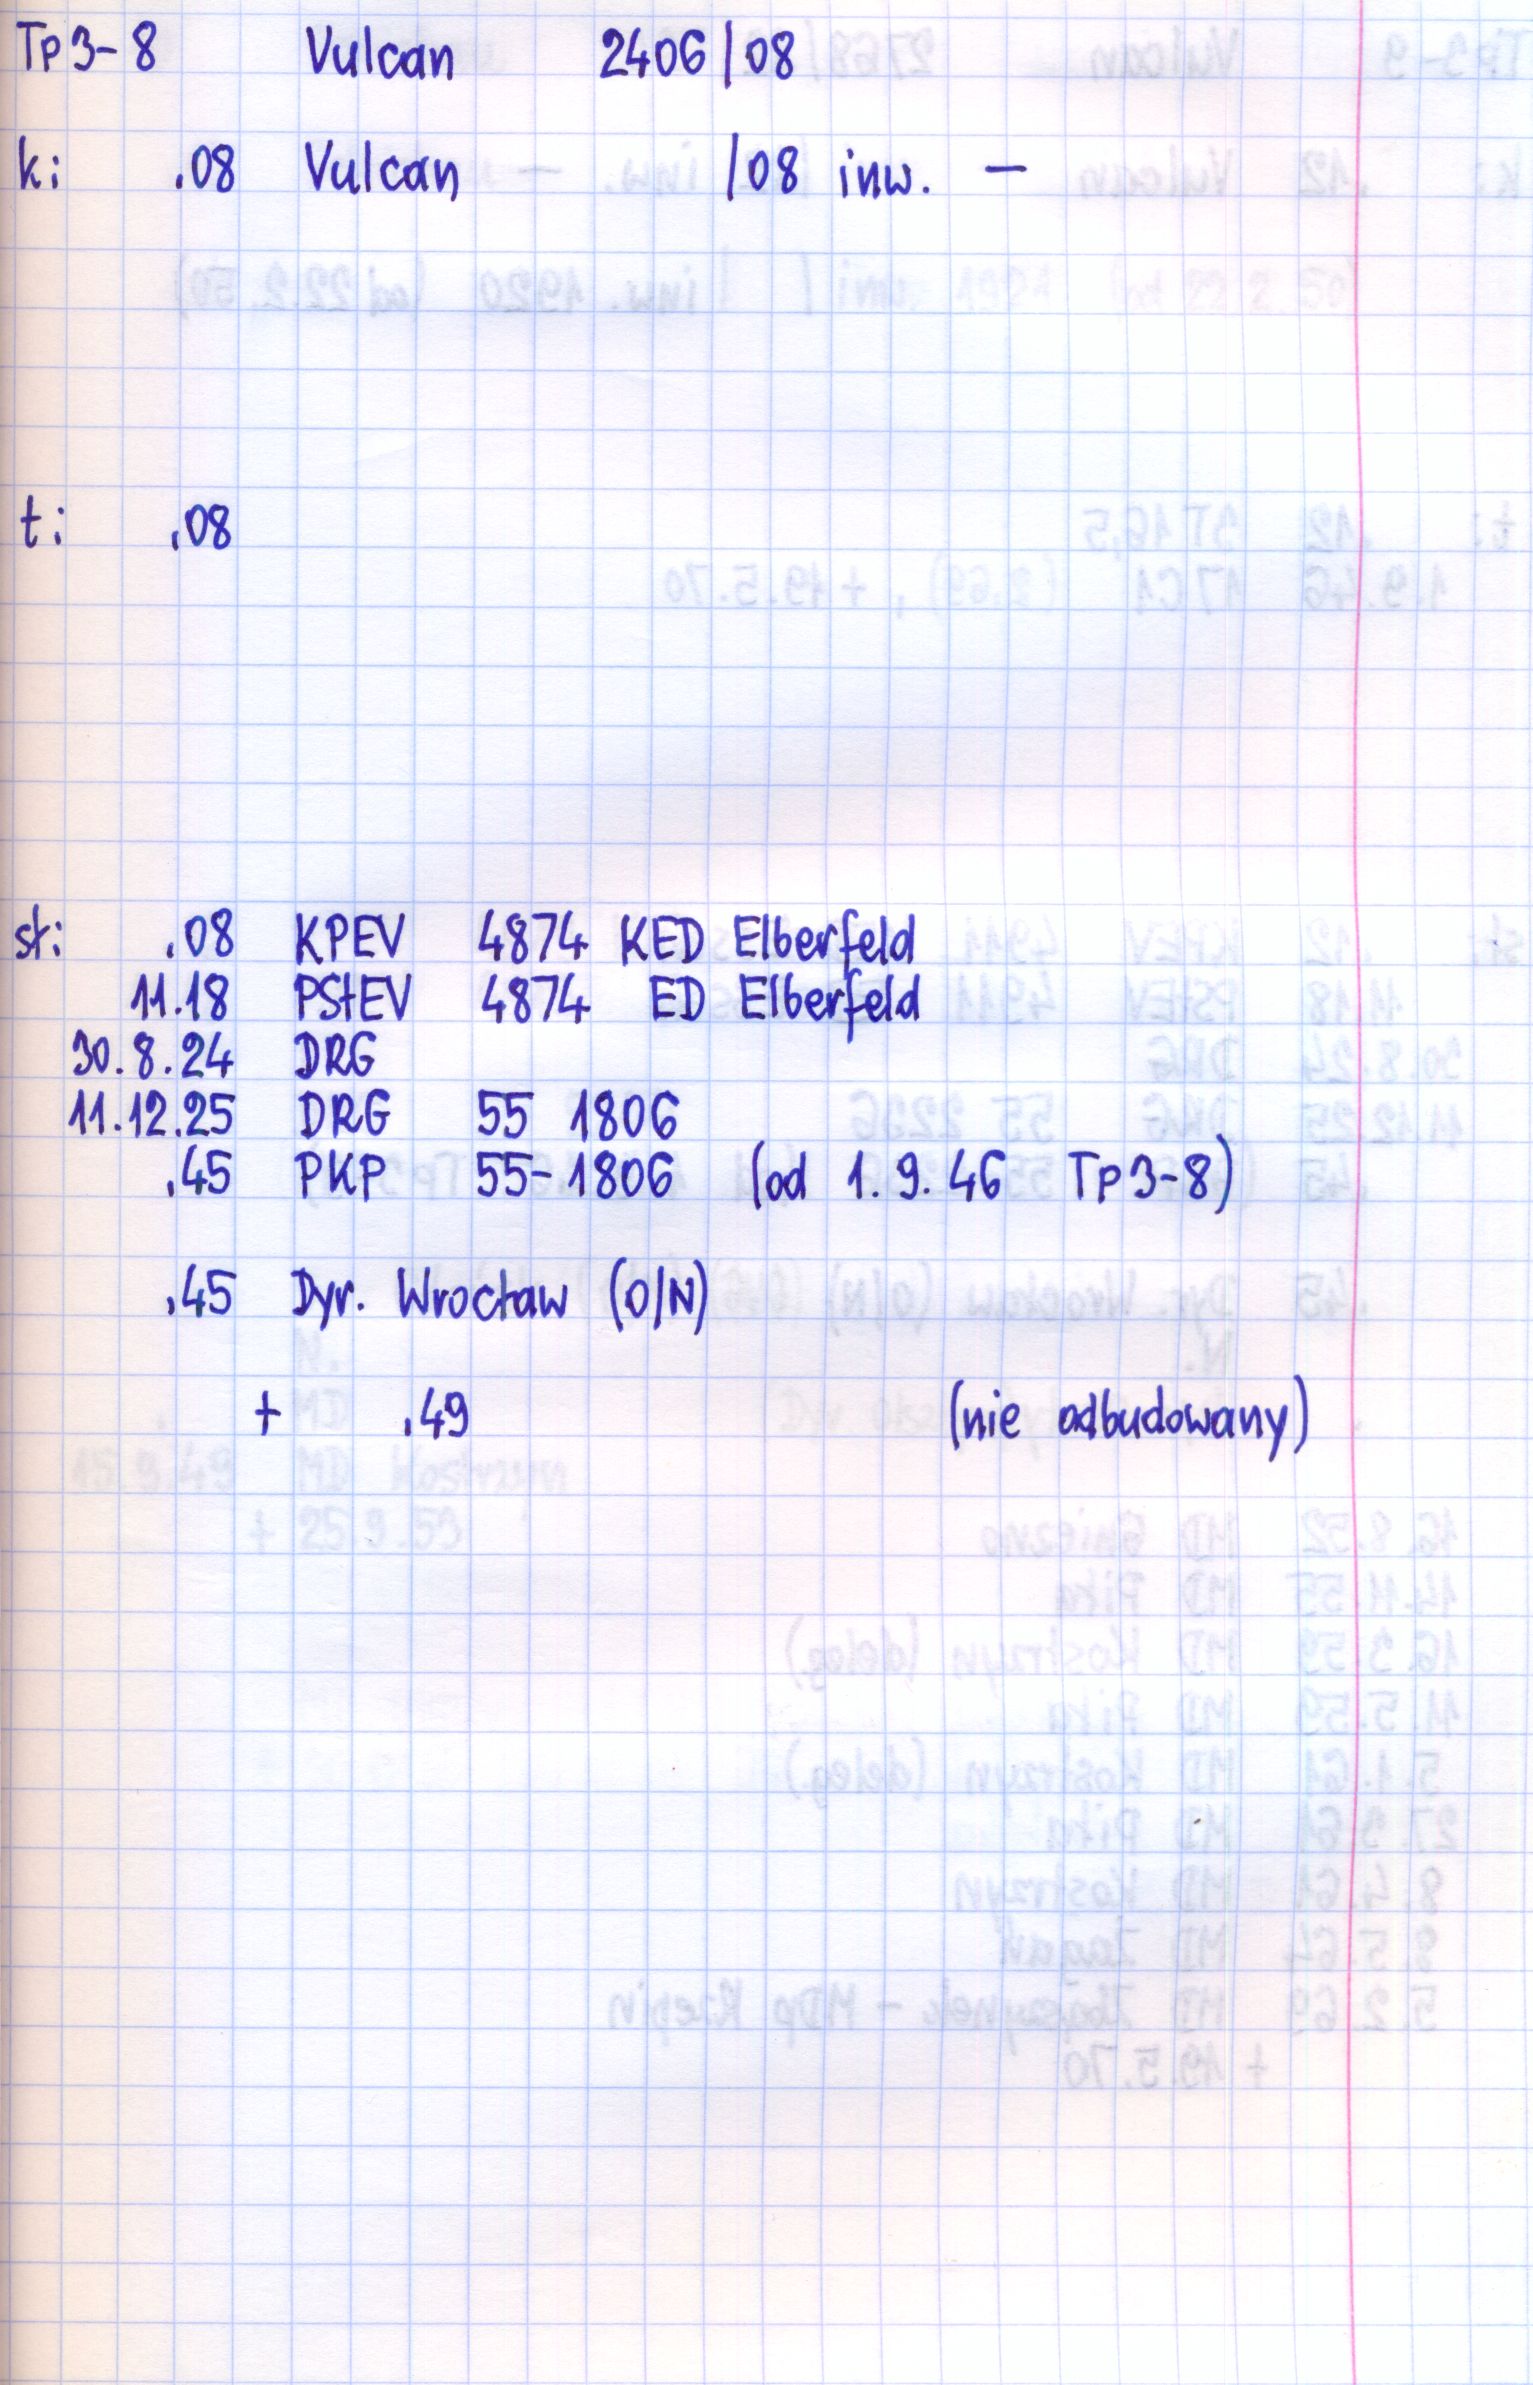 Tp3-8 Vulcan 2406/08
k: .08 Vulcan /08 inw. —
t: .08
st: .08 KPEV 4874 KED Elberfeld
11.18 PStEV 4874 ED Elberfeld
30.8.24 DRG
11.12.25 DRG 55 1806
.45 PKP 55-1806 (od 1.9.46 Tp3-8)
.45 Dyr. Wrocław (O/N)
+ .49 (nie odbudowany)